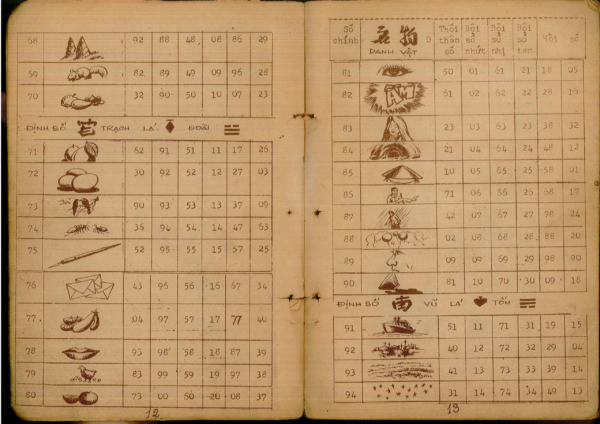 68 92 88 48 08 86 29
69 82 89 49 09 96 28
70 32 90 50 10 07 23
ĐỊNH SỐ TRẠCH LÁ ♦ ĐOÀI ☱
71 62 91 51 11 17 26
72 30 92 52 12 27 03
73 90 93 53 13 37 09
74 36 94 54 14 47 63
75 52 95 55 15 57 25
76 43 96 56 16 67 34
77 04 97 57 17 77 40
78 93 98 58 18 87 39
79 83 99 59 19 97 38
80 73 00 60 20 08 37
12
Số chính 物 D DANH VẬT Thối thân số Bội số nhứt Bội số nhì Bội số tam Tối số
81 50 01 61 21 18 05
82 ẦM 61 02 62 22 28 16
83 23 03 63 23 38 32
84 21 04 64 24 48 12
85 10 05 65 25 58 01
86 71 06 66 26 68 17
87 42 07 67 27 78 24
88 02 08 68 28 88 20
89 09 09 69 29 98 90
90 81 10 70 30 09 18
ĐỊNH SỐ 南 VŨ LÁ ♠ TỐN ☴
91 51 11 71 31 19 15
92 40 12 72 32 29 04
93 41 13 73 33 39 14
94 31 14 74 34 49 13
13